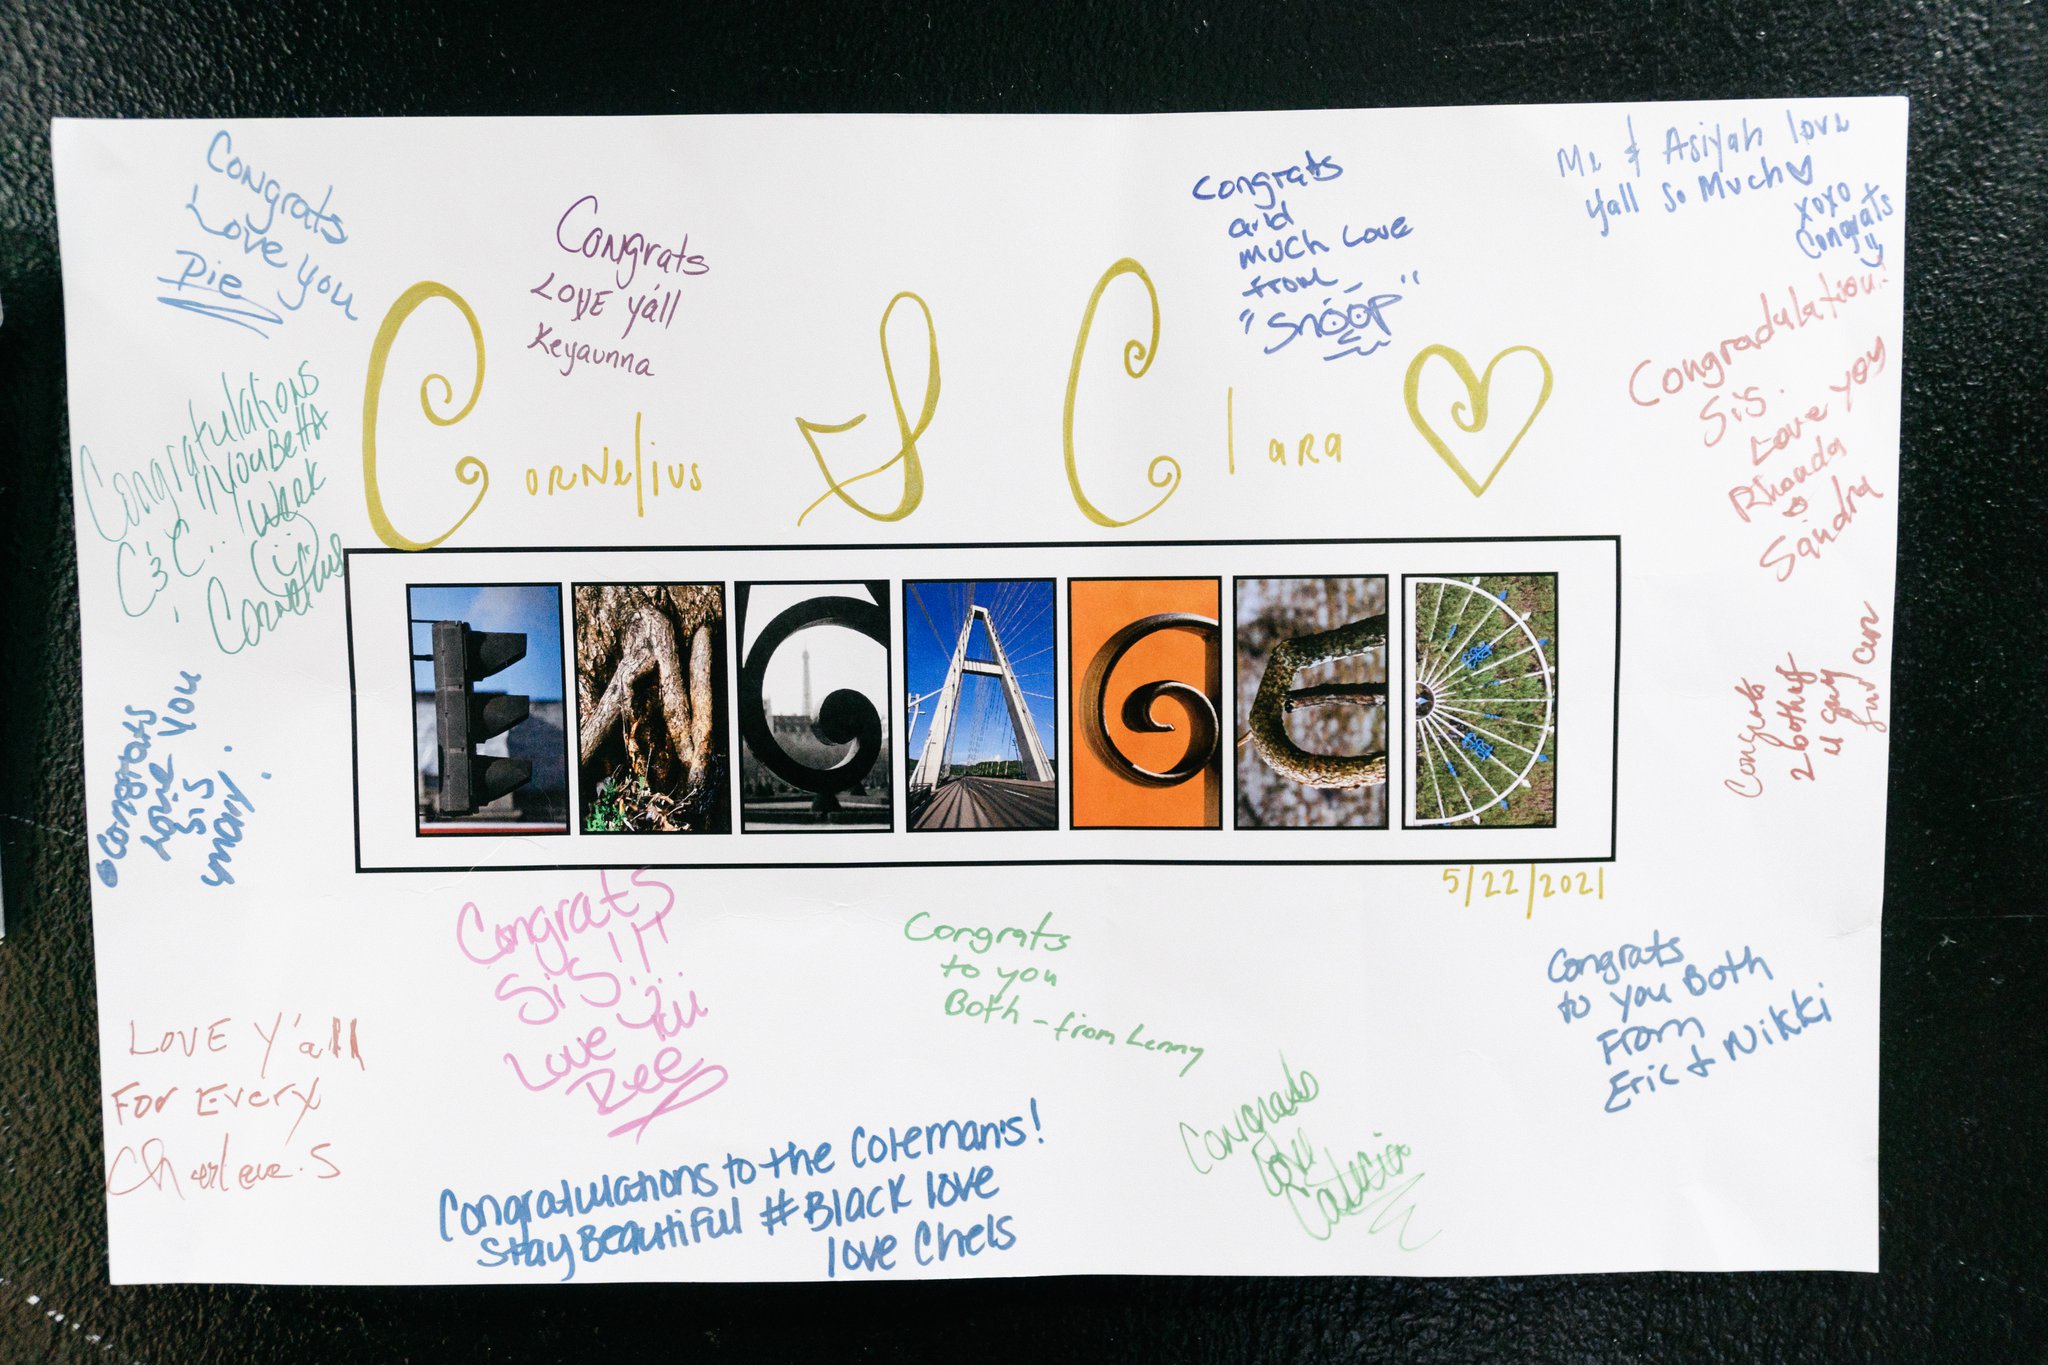 Congrats
Love you
Pie
Congrats
LOVE y'all
Keyaunna
Congrats
and
Much Love
from
"Snoop"
Me & Asiyah love
yall so Much
XOXO
Congrats
Cornelius & Clara
Congradulation!
Sis.
Love you
Rhonda
&
Sandra
Congratulations
YouBetta
C&C Work
Cornelius
ENGAGED
5/22/2021
Congrats
2 both of
u guy
Congrats
Love You
Sis
Congrats
SiS!!!
Love You
Dee
Congrats
to you
Both - from Lenny
Congrats
to you Both
From
Eric & Nikki
LOVE Y'all
For Every
Charlene.S
Congratulations to the Coleman's!
Stay Beautiful #Black love
love Chels
Congrads
Love